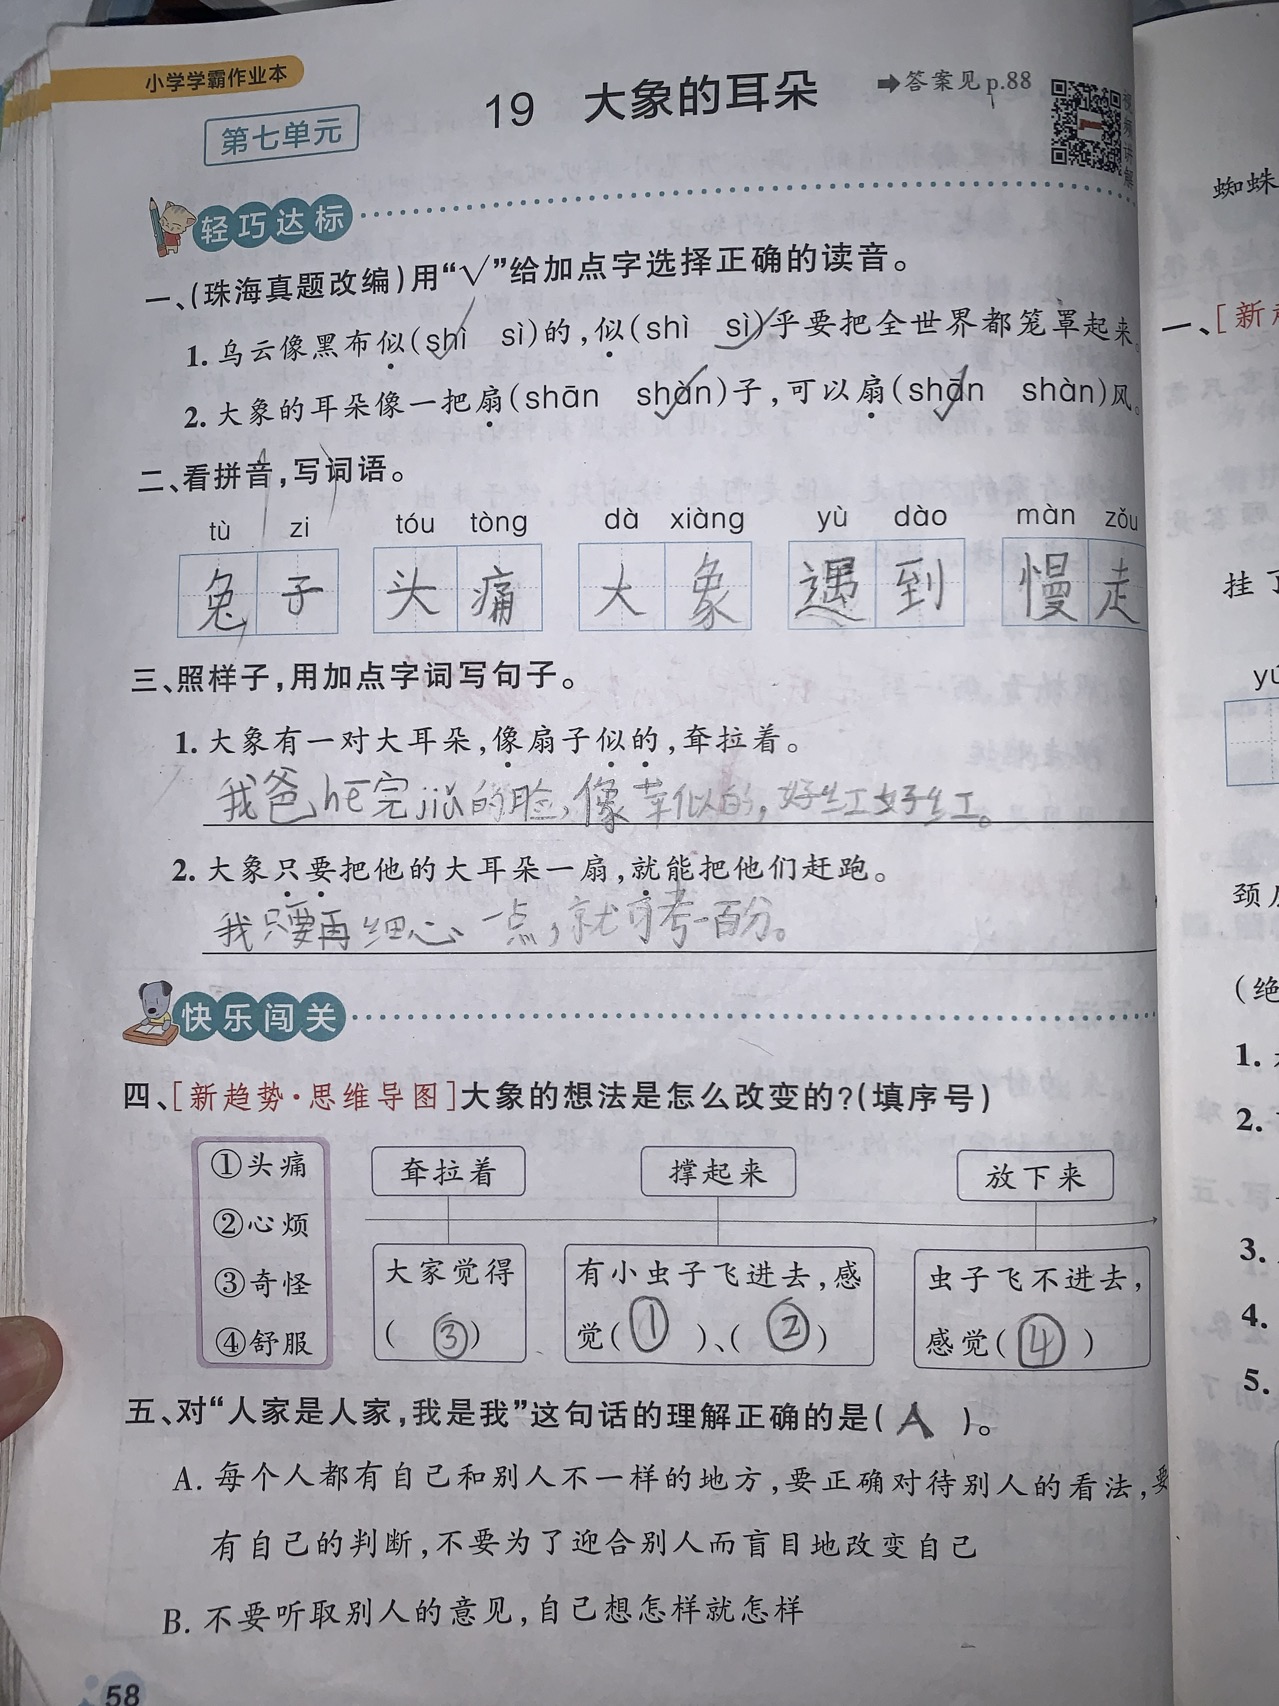 小学学霸作业本
第七单元
19 大象的耳朵
➡答案见 p.88
视频讲解
轻巧达标
一、(珠海真题改编)用“√”给加点字选择正确的读音。
1. 乌云像黑布似(shì sì)的,似(shì sì)乎要把全世界都笼罩起来。
2. 大象的耳朵像一把扇(shān shàn)子,可以扇(shān shàn)风。
二、看拼音,写词语。
tù zi tóu tòng dà xiàng yù dào màn zǒu
兔子 头痛 大象 遇到 慢走
三、照样子,用加点字词写句子。
1. 大象有一对大耳朵,像扇子似的,耷拉着。
我爸hē完jiǔ的脸,像苹似的,好红好红。
2. 大象只要把他的大耳朵一扇,就能把他们赶跑。
我只要再细心一点,就可考一百分。
快乐闯关
四、[新趋势·思维导图]大象的想法是怎么改变的?(填序号)
①头痛
②心烦
③奇怪
④舒服
耷拉着 撑起来 放下来
大家觉得
( ③ )
有小虫子飞进去,感
觉( ① )、( ② )
虫子飞不进去,
感觉( ④ )
五、对“人家是人家,我是我”这句话的理解正确的是( A )。
A. 每个人都有自己和别人不一样的地方,要正确对待别人的看法,要
有自己的判断,不要为了迎合别人而盲目地改变自己
B. 不要听取别人的意见,自己想怎样就怎样
58
蜘蛛
一、[新
挂了
颈
(绝
1.
2.
3.
4.
5.